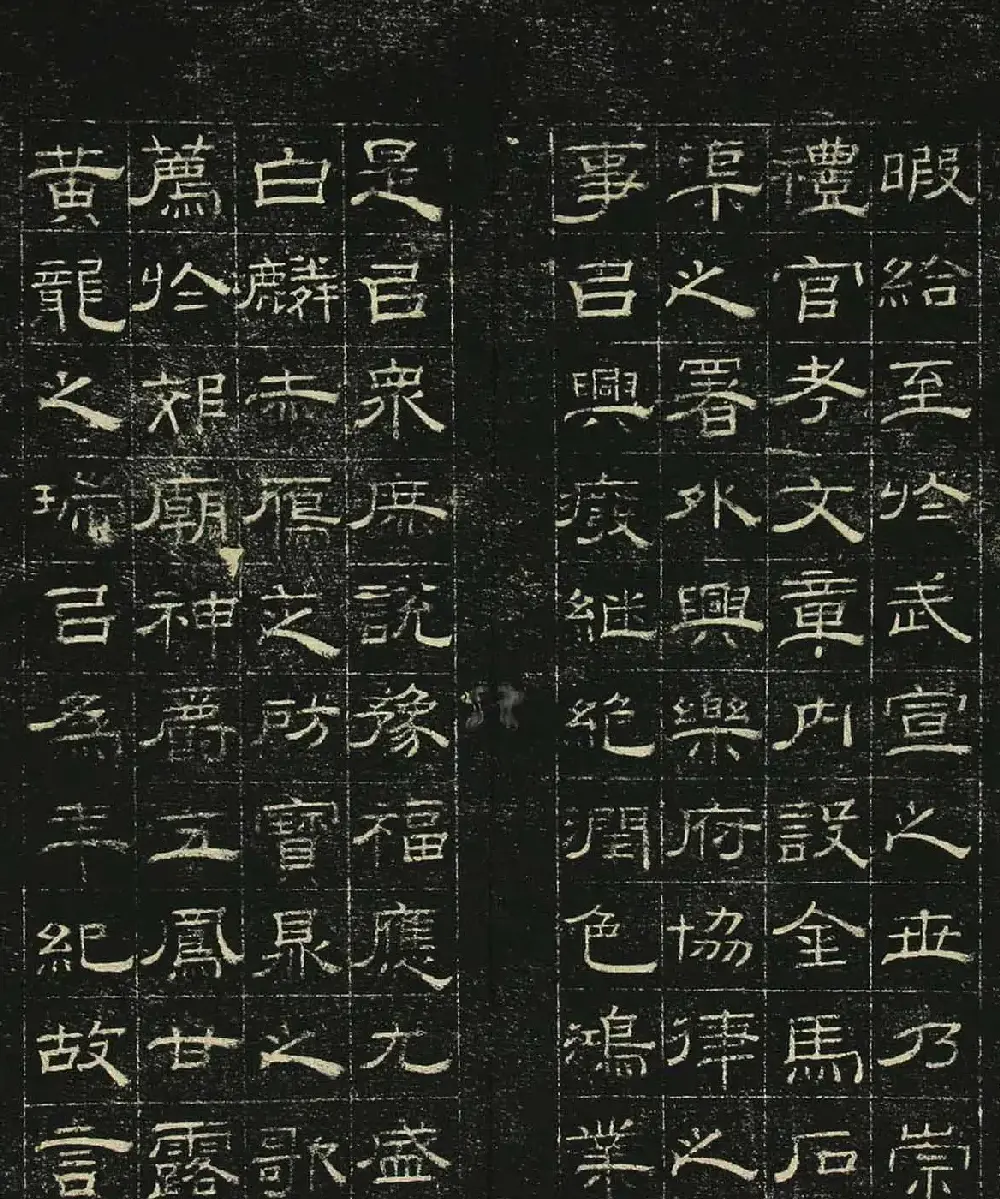 暇給至於武宣之世乃崇
禮官考文章內設金馬石
渠之署外興樂府協律之
事㠯興廢继絕潤色鴻業
是㠯衆庶說豫福應尤盛
白麟赤鴈之芝房寶鼎之歌
薦於郊廟神爵五鳳甘露
黃龍之瑞㠯為年紀故言